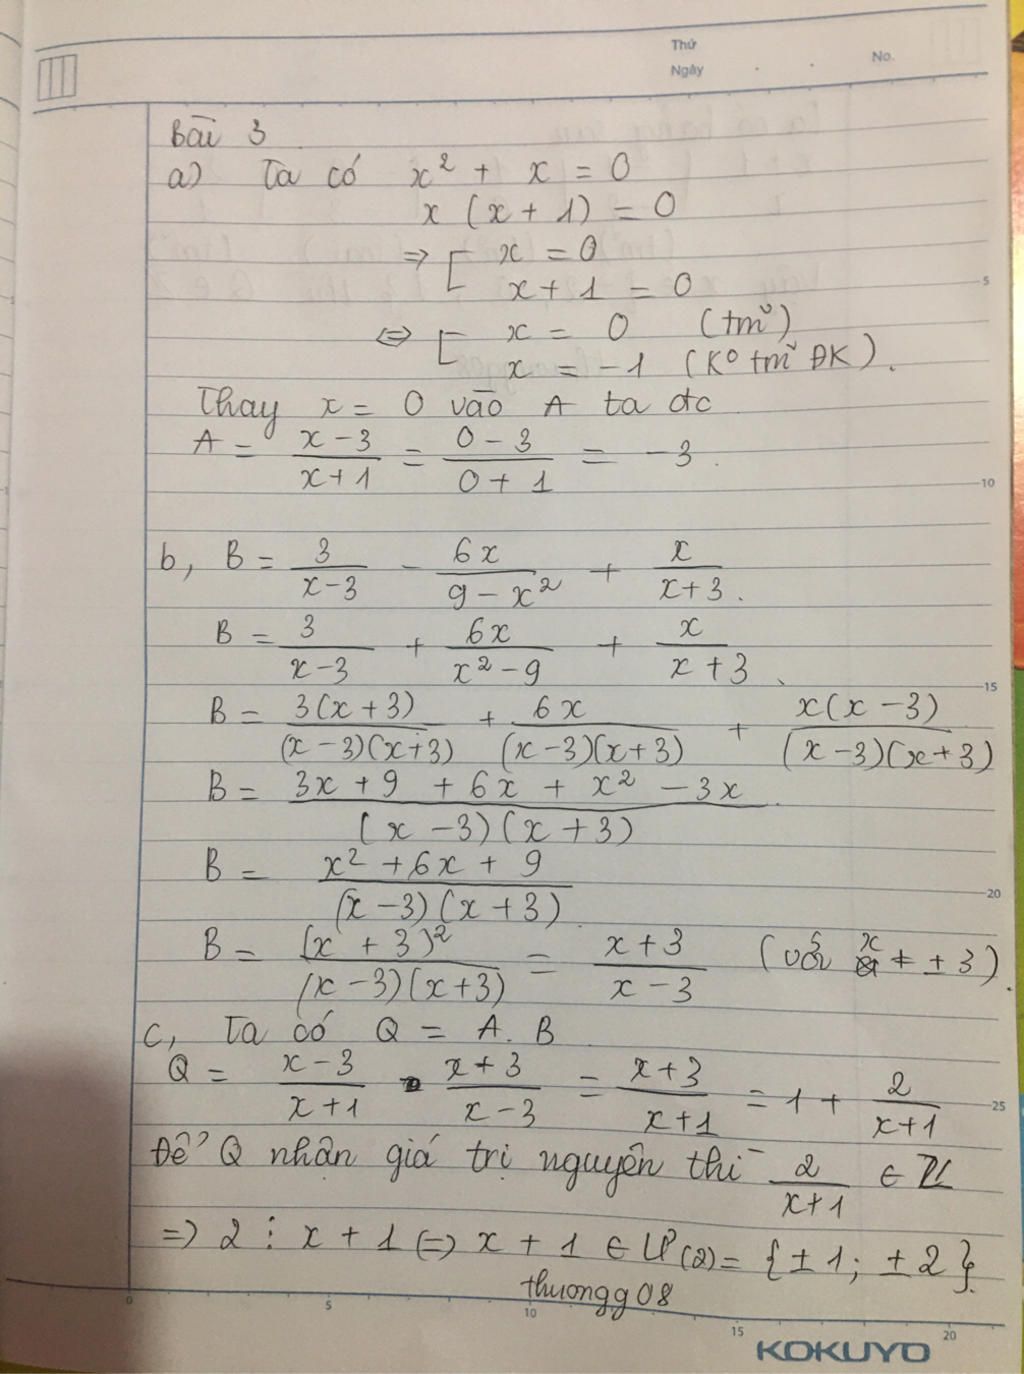 Thứ
Ngày
No.
Bài 3
a) Ta có x² + x = 0
x (x + 1) = 0
⇒ [ x = 0
x + 1 = 0
⇔ [ x = 0 (tm)
x = -1 (K° tm ĐK).
Thay x = 0 vào A ta đc
A = (x - 3)/(x + 1) = (0 - 3)/(0 + 1) = -3.
b, B = 3/(x - 3) - 6x/(9 - x²) + x/(x + 3).
B = 3/(x - 3) + 6x/(x² - 9) + x/(x + 3).
B = 3(x + 3)/((x - 3)(x + 3)) + 6x/((x - 3)(x + 3)) + x(x - 3)/((x - 3)(x + 3))
B = (3x + 9 + 6x + x² - 3x)/((x - 3)(x + 3))
B = (x² + 6x + 9)/((x - 3)(x + 3))
B = (x + 3)²/((x - 3)(x + 3)) = (x + 3)/(x - 3) (với x ≠ ±3).
c, Ta có Q = A. B
Q = (x - 3)/(x + 1) • (x + 3)/(x - 3) = (x + 3)/(x + 1) = 1 + 2/(x + 1)
Để Q nhận giá trị nguyên thì 2/(x + 1) ∈ Z
⇒ 2 ⋮ x + 1 ⇔ x + 1 ∈ Ư(2) = {±1; ±2}.
thuongg08
KOKUYO